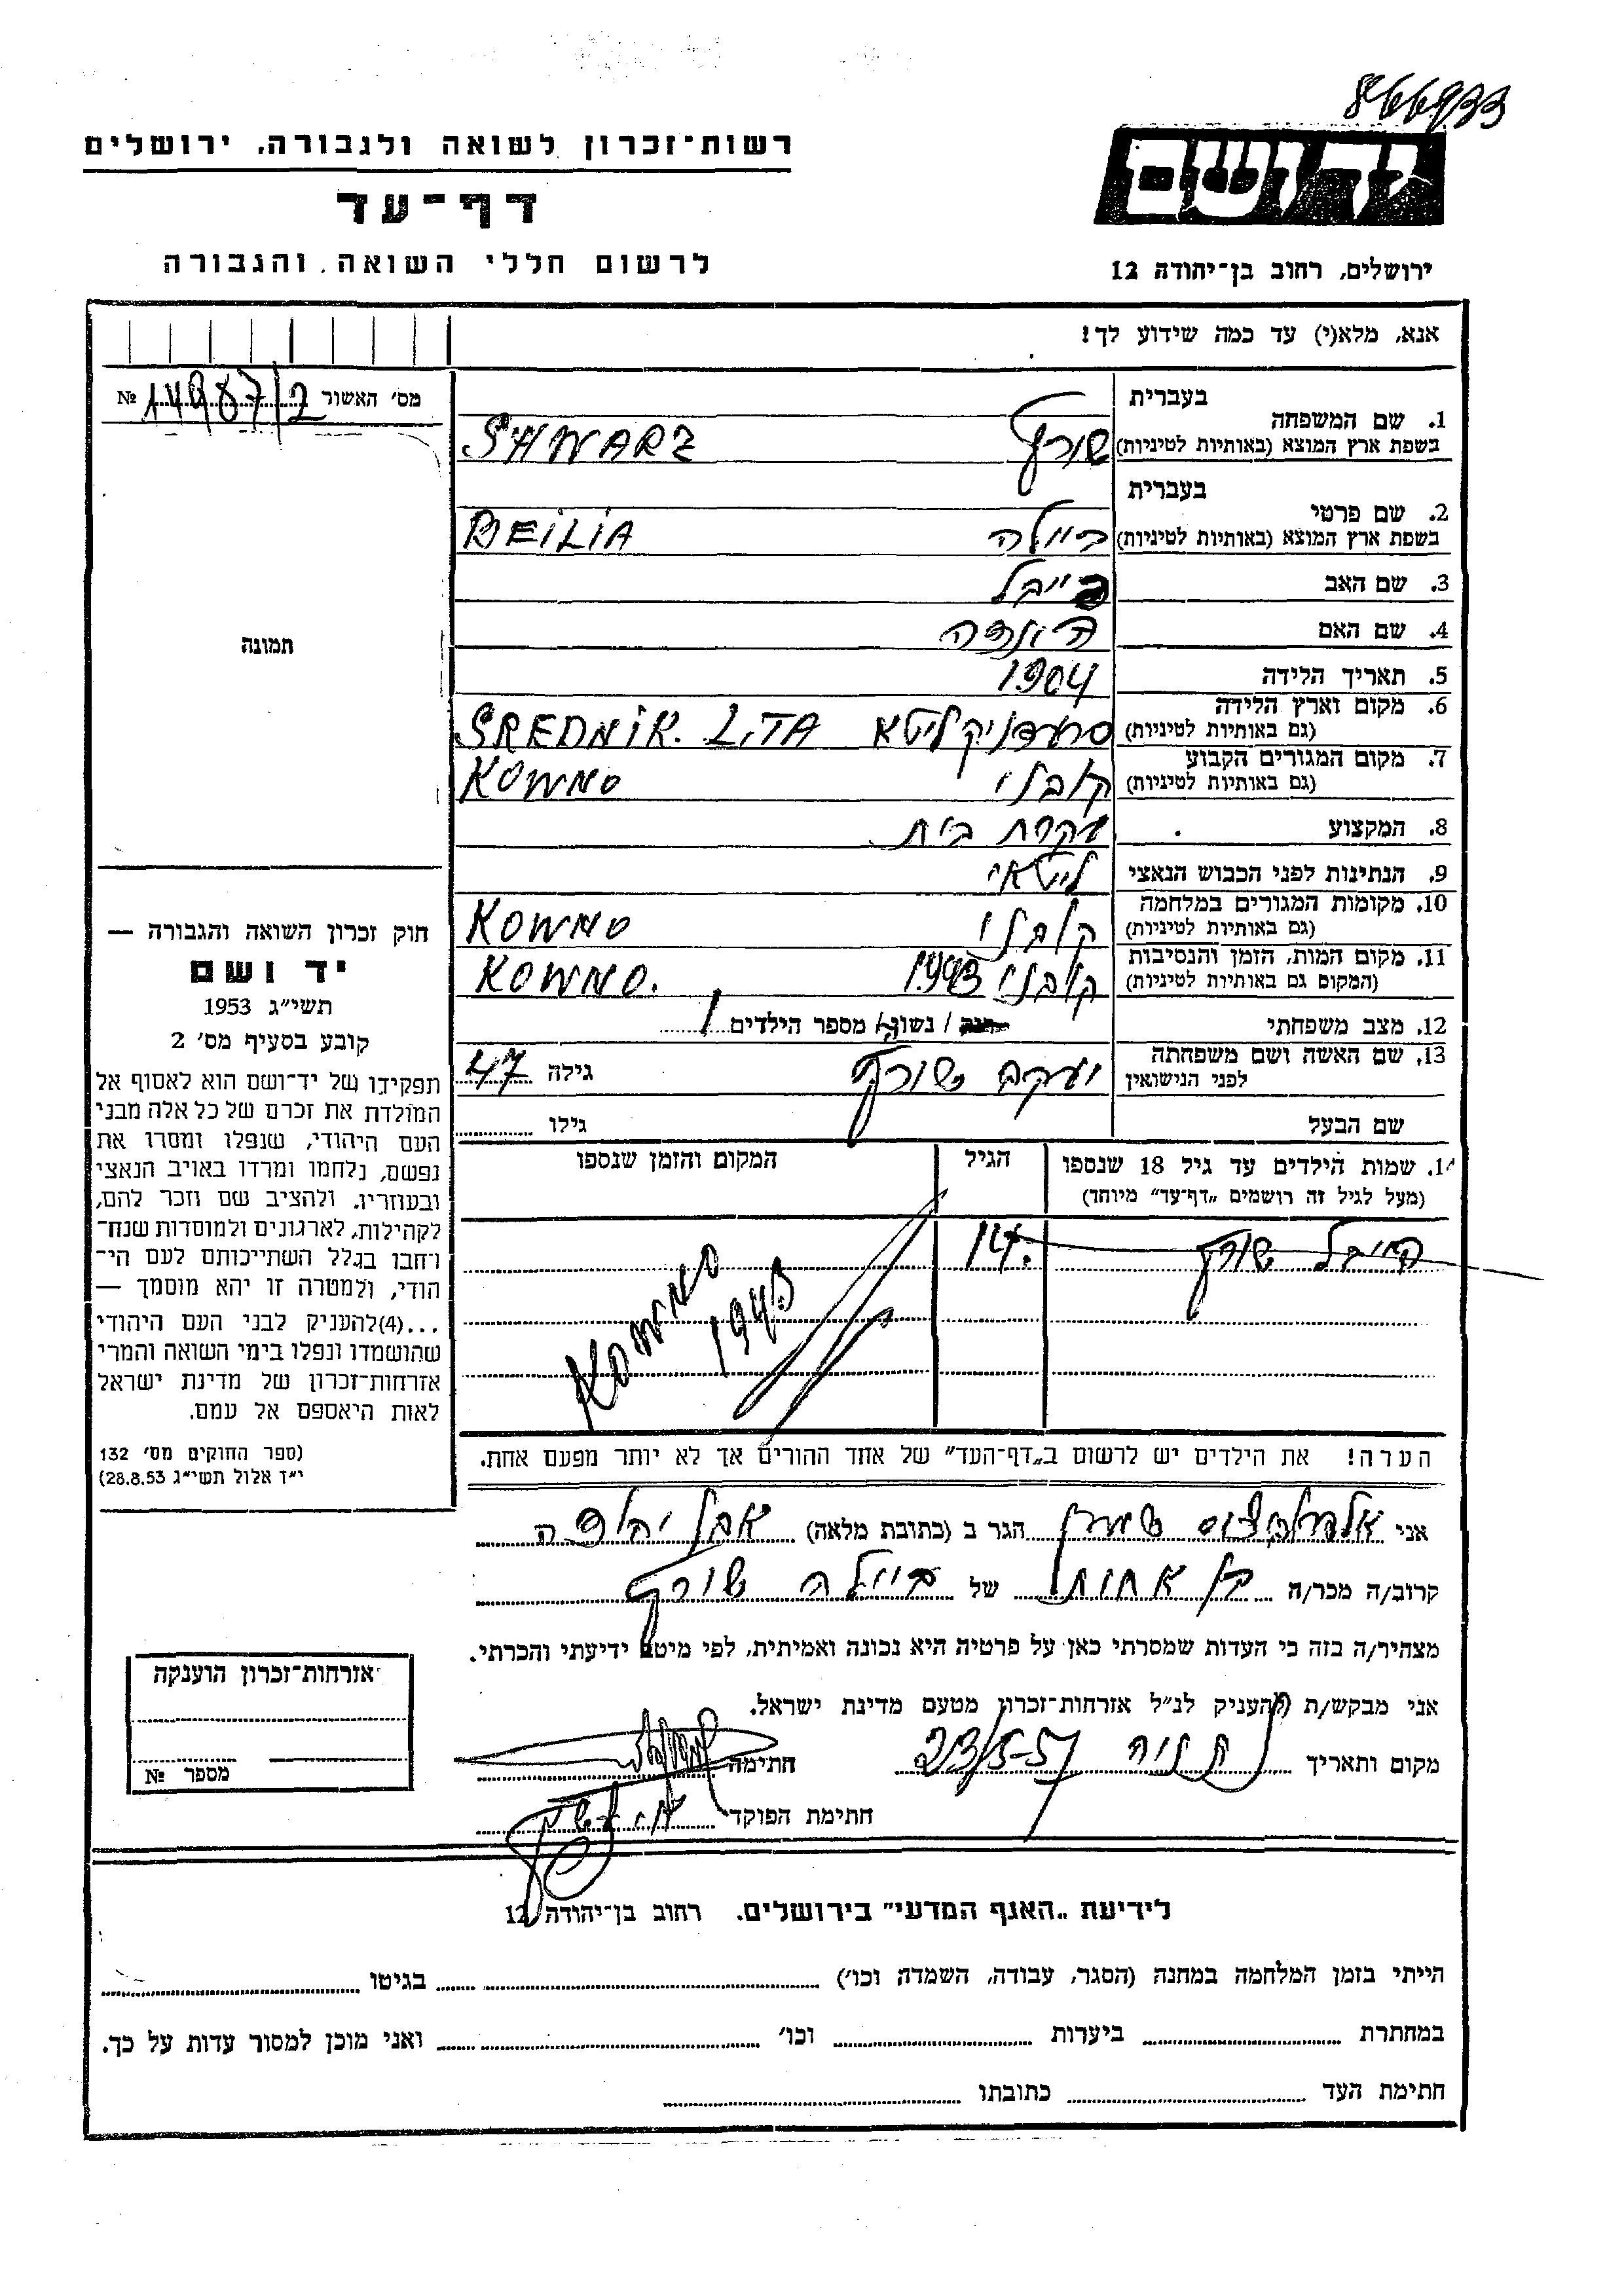 866933
רשות־זכרון לשואה ולגבורה. ירושלים
ידושם
דף־עד
לרשום חללי השואה והגבורה
ירושלים, רחוב בן־יהודה 12
אנא, מלא(י) עד כמה שידוע לך!
מס׳ האשור 14987/2 №
תמונה
1. שם המשפחה
בעברית שורץ
בשפת ארץ המוצא (באותיות לטיניות) SHWARZ
2. שם פרטי
בעברית ביילה
בשפת ארץ המוצא (באותיות לטיניות) BEILIA
3. שם האב לייבל
4. שם האם
5. תאריך הלידה 1904
6. מקום וארץ הלידה סרעדניק ליטא SREDNIK. LITA
(גם באותיות לטיניות)
7. מקום המגורים הקבוע קובנו KOWNO
(גם באותיות לטיניות)
8. המקצוע עקרת בית
9. הנתינות לפני הכבוש הנאצי ליטאי
10. מקומות המגורים במלחמה קובנו KOWNO
(גם באותיות לטיניות)
11. מקום המות, הזמן והנסיבות קובנו 1943 KOWNO.
(המקום גם באותיות לטיניות)
12. מצב משפחתי / נשוי / מספר הילדים 1
13. שם האשה ושם משפחתה
לפני הנישואין
יעקב שורץ גילה 47
שם הבעל גילו
14. שמות הילדים עד גיל 18 שנספו הגיל המקום והזמן שנספו
(מעל לגיל זה רושמים „דף־עד" מיוחד)
שורץ 14. KOWNO 1943
הערה! את הילדים יש לרשום ב„דף־העד" של אחד ההורים אך לא יותר מפעם אחת.
חוק זכרון השואה והגבורה —
יד ושם
תשי״ג 1953
קובע בסעיף מס׳ 2
תפקידו של יד־ושם הוא לאסוף אל
המולדת את זכרם של כל אלה מבני
העם היהודי, שנפלו ומסרו את
נפשם, נלחמו ומרדו באויב הנאצי
ובעוזריו. ולהציב שם וזכר להם,
לקהילות, לארגונים ולמוסדות שנח־
רחבו בגלל השתייכותם לעם הי־
הודי, ולמטרה זו יהא מוסמך —
...(4)להעניק לבני העם היהודי
שהושמדו ונפלו בימי השואה והמרי
אזרחות־זכרון של מדינת ישראל
לאות היאספם אל עמם.
(ספר החוקים מס׳ 132
י״ד אלול תשי״ג 28.8.53)
אני הגר ב (כתובת מלאה) אבן יהודה
קרוב/ה מכר/ה בן אחות של ביילה שורץ
מצהיר/ה בזה כי העדות שמסרתי כאן על פרטיה היא נכונה ואמיתית, לפי מיטב ידיעתי והכרתי.
אני מבקש/ת להעניק לנ״ל אזרחות־זכרון מטעם מדינת ישראל.
מקום ותאריך נתניה 23/5-57 חתימה
חתימת הפוקד
אזרחות־זכרון הוענקה
מספר №
לידיעת „האגף המדעי" בירושלים. רחוב בן־יהודה 12
הייתי בזמן המלחמה במחנה (הסגר, עבודה, השמדה וכו׳) בגיטו
במחתרת ביערות וכו׳ ואני מוכן למסור עדות על כך.
חתימת העד כתובתו